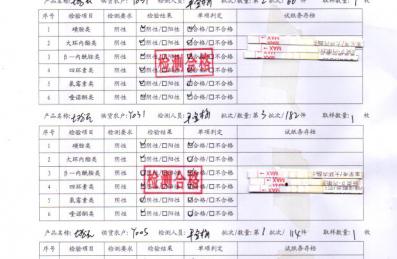 产品名称: 供货农户: Y031 检测人员: 批次/数量: 第2次/60件 取样数量: 1枚
序号 检验项目 检测要求 检验结果 单项判定 试纸条存档
1 磺胺类 阴性 ☑阴性/☐阳性 ☑合格/☐不合格
2 大环内酯类 阴性 ☑阴性/☐阳性 ☑合格/☐不合格
3 β-内酰胺类 阴性 ☑阴性/☐阳性 ☑合格/☐不合格
4 四环素类 阴性 ☑阴性/☐阳性 ☑合格/☐不合格
5 氟霉素类 阴性 ☑阴性/☐阳性 ☑合格/☐不合格
6 喹诺酮类 阴性 ☑阴性/☐阳性 ☑合格/☐不合格
检测合格
MAX
MAX
产品名称: 供货农户: Y031 检测人员: 批次/数量: 第3次/182件 取样数量: 1枚
序号 检验项目 检测要求 检验结果 单项判定 试纸条存档
1 磺胺类 阴性 ☑阴性/☐阳性 ☑合格/☐不合格
2 大环内酯类 阴性 ☑阴性/☐阳性 ☑合格/☐不合格
3 β-内酰胺类 阴性 ☑阴性/☐阳性 ☑合格/☐不合格
4 四环素类 阴性 ☑阴性/☐阳性 ☑合格/☐不合格
5 氟霉素类 阴性 ☑阴性/☐阳性 ☑合格/☐不合格
6 喹诺酮类 阴性 ☑阴性/☐阳性 ☑合格/☐不合格
检测合格
MAX
MAX
产品名称: 供货农户: Y005 检测人员: 批次/数量: 第1次/114件 取样数量: 1枚
序号 检验项目 检测要求 检验结果 单项判定 试纸条存档